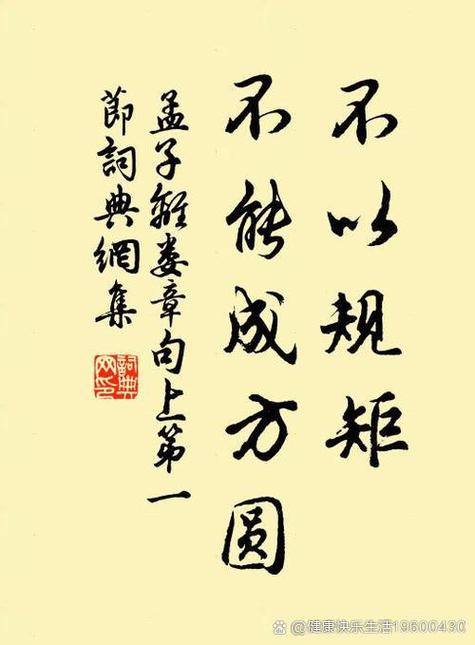 不以规矩
不能成方圆
孟子離娄章句上第一
節詞典網集
詞典网印
@健康快乐生活19600430